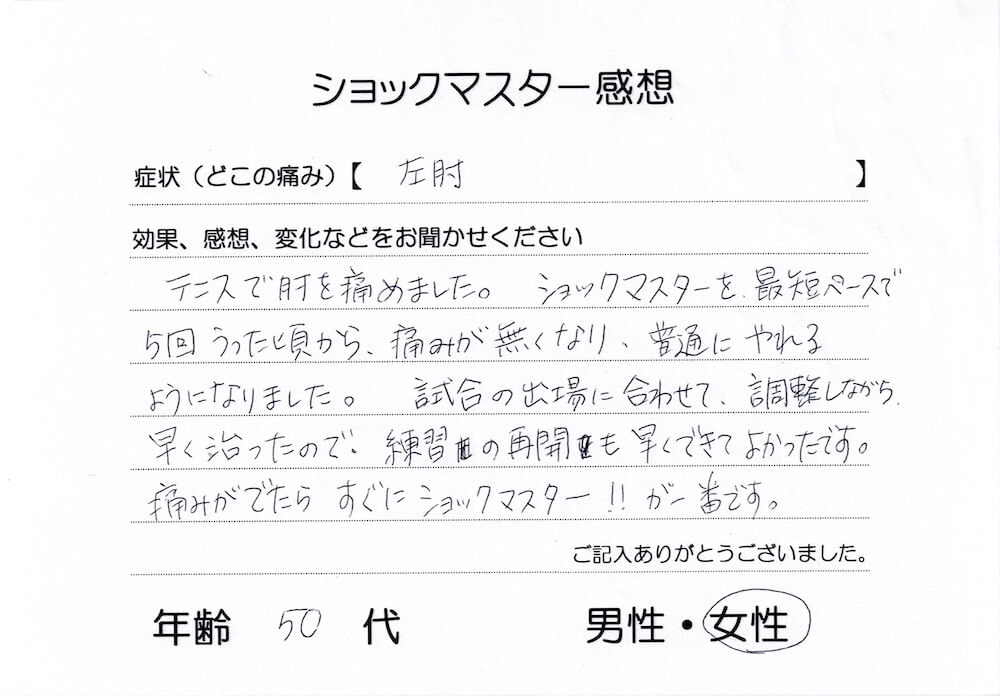 ショックマスター感想
症状（どこの痛み）【 左肘 】
効果、感想、変化などをお聞かせください
テニスで肘を痛めました。 ショックマスターを、最短ペースで
5回 うった頃から、痛みが無くなり、普通に やれる
ようになりました。 試合の出場に合わせて、調整しながら、
早く治ったので、練習の再開も早くできてよかったです。
痛みがでたら すぐに ショックマスター!! が一番です。
ご記入ありがとうございました。
年齢 50 代 男性・女性